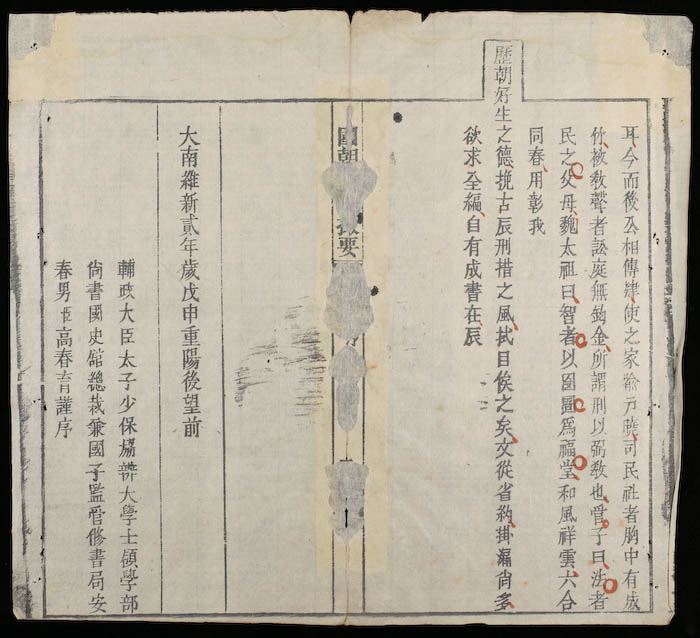 耳今而後公相傳肄使之家喻戶曉司民社者胸中有成
竹被敎聲者訟庭無鈞金所謂刑以弼敎也管子曰法者
民之父母魏太祖曰智者以囹圄爲福堂和風祥雲六合
同春用彰我
歷朝好生之德挽古辰刑措之風拭目俟之矣文從省約掛漏尙多
欲求全編自有成書在辰
國朝 要
大南維新貳年歲戊申重陽後望前
輔政大臣太子少保協辨大學士領學部
尙書國史舘總裁兼國子監管修書局安
春男臣高春育謹序